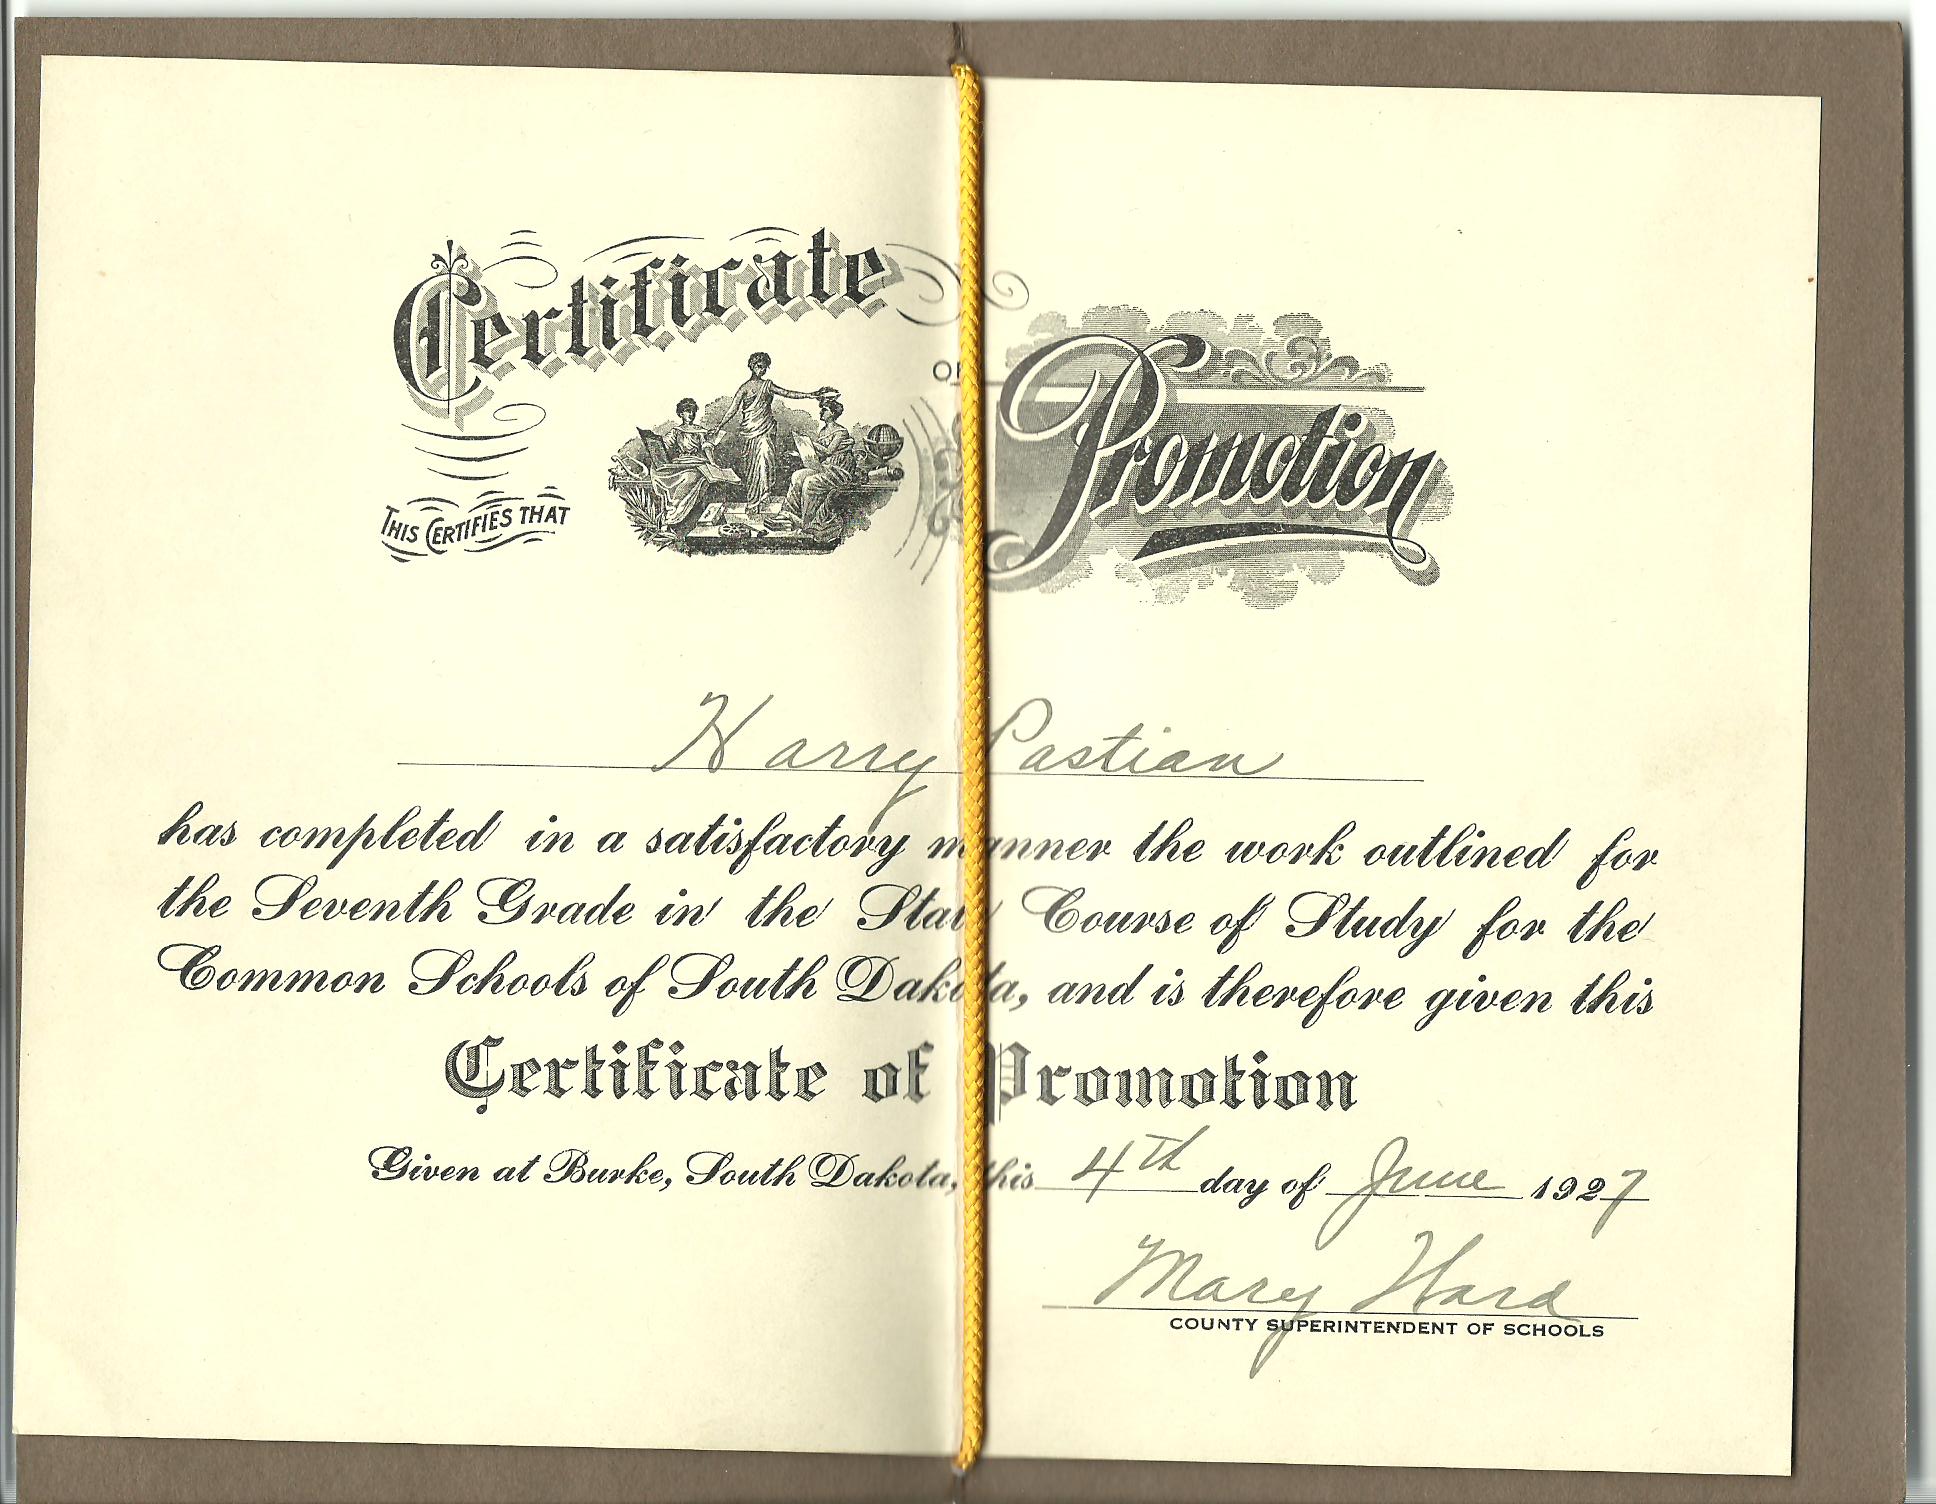 Certificate
OF
Promotion
THIS CERTIFIES THAT
Harry Pastian
has completed in a satisfactory manner the work outlined for
the Seventh Grade in the State Course of Study for the
Common Schools of South Dakota, and is therefore given this
Certificate of Promotion
Given at Burke, South Dakota, this 4th day of June 1927
Mary Ward
COUNTY SUPERINTENDENT OF SCHOOLS